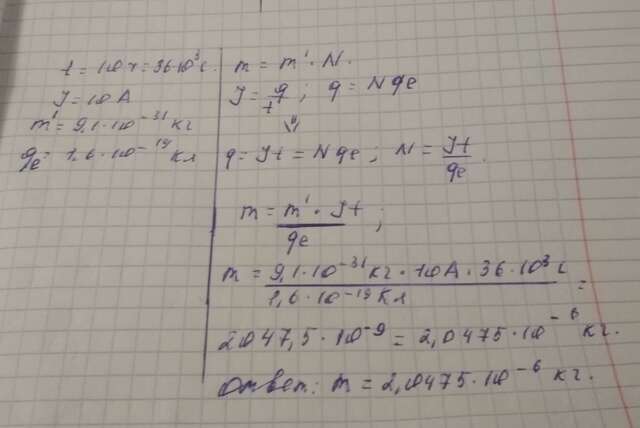 t = 10 ч = 36·10³ с.
J = 10 А
m' = 9,1·10⁻³¹ кг
qe = 1,6·10⁻¹⁹ Кл
m = m'·N.
J = q/t ; q = Nqe
⇓
q = Jt = Nqe ; N = Jt/qe.
m = m'·Jt/qe ;
m = 9,1·10⁻³¹ кг · 10А · 36·10³ с / 1,6·10⁻¹⁹ Кл =
2047,5·10⁻⁹ = 2,0475·10⁻⁶ кг.
Ответ: m = 2,0475·10⁻⁶ кг.